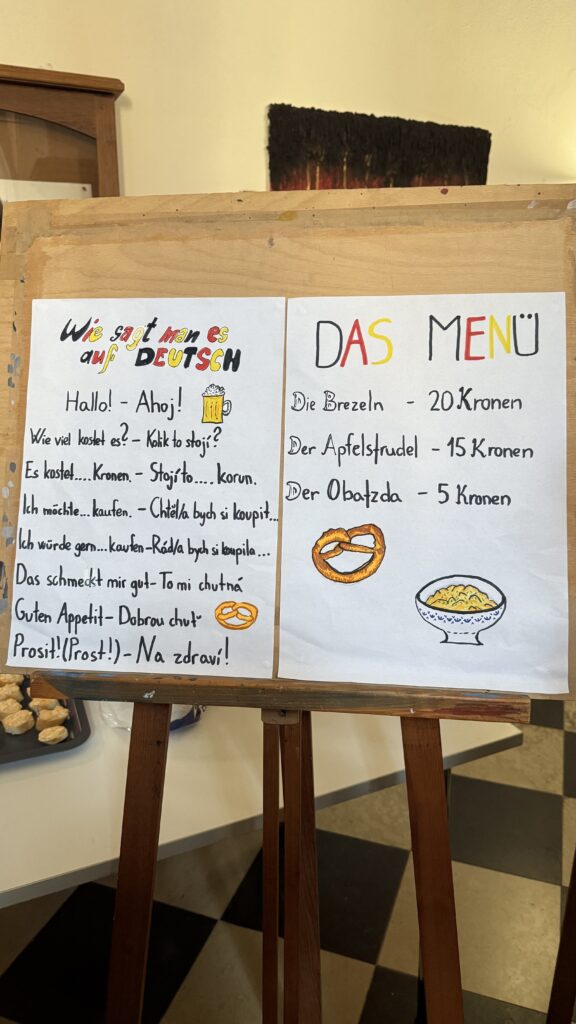 Wie sagt man es
auf DEUTSCH
Hallo! - Ahoj!
Wie viel kostet es? - Kolik to stojí?
Es kostet.... Kronen. - Stojí to.... korun.
Ich möchte... kaufen. - Chtěl/a bych si koupit...
Ich würde gern... kaufen - Rád/a bych si koupila...
Das schmeckt mir gut - To mi chutná
Guten Appetit - Dobrou chuť
Prosit! (Prost!) - Na zdraví!
DAS MENÜ
Die Brezeln - 20 Kronen
Der Apfelstrudel - 15 Kronen
Der Obatzda - 5 Kronen